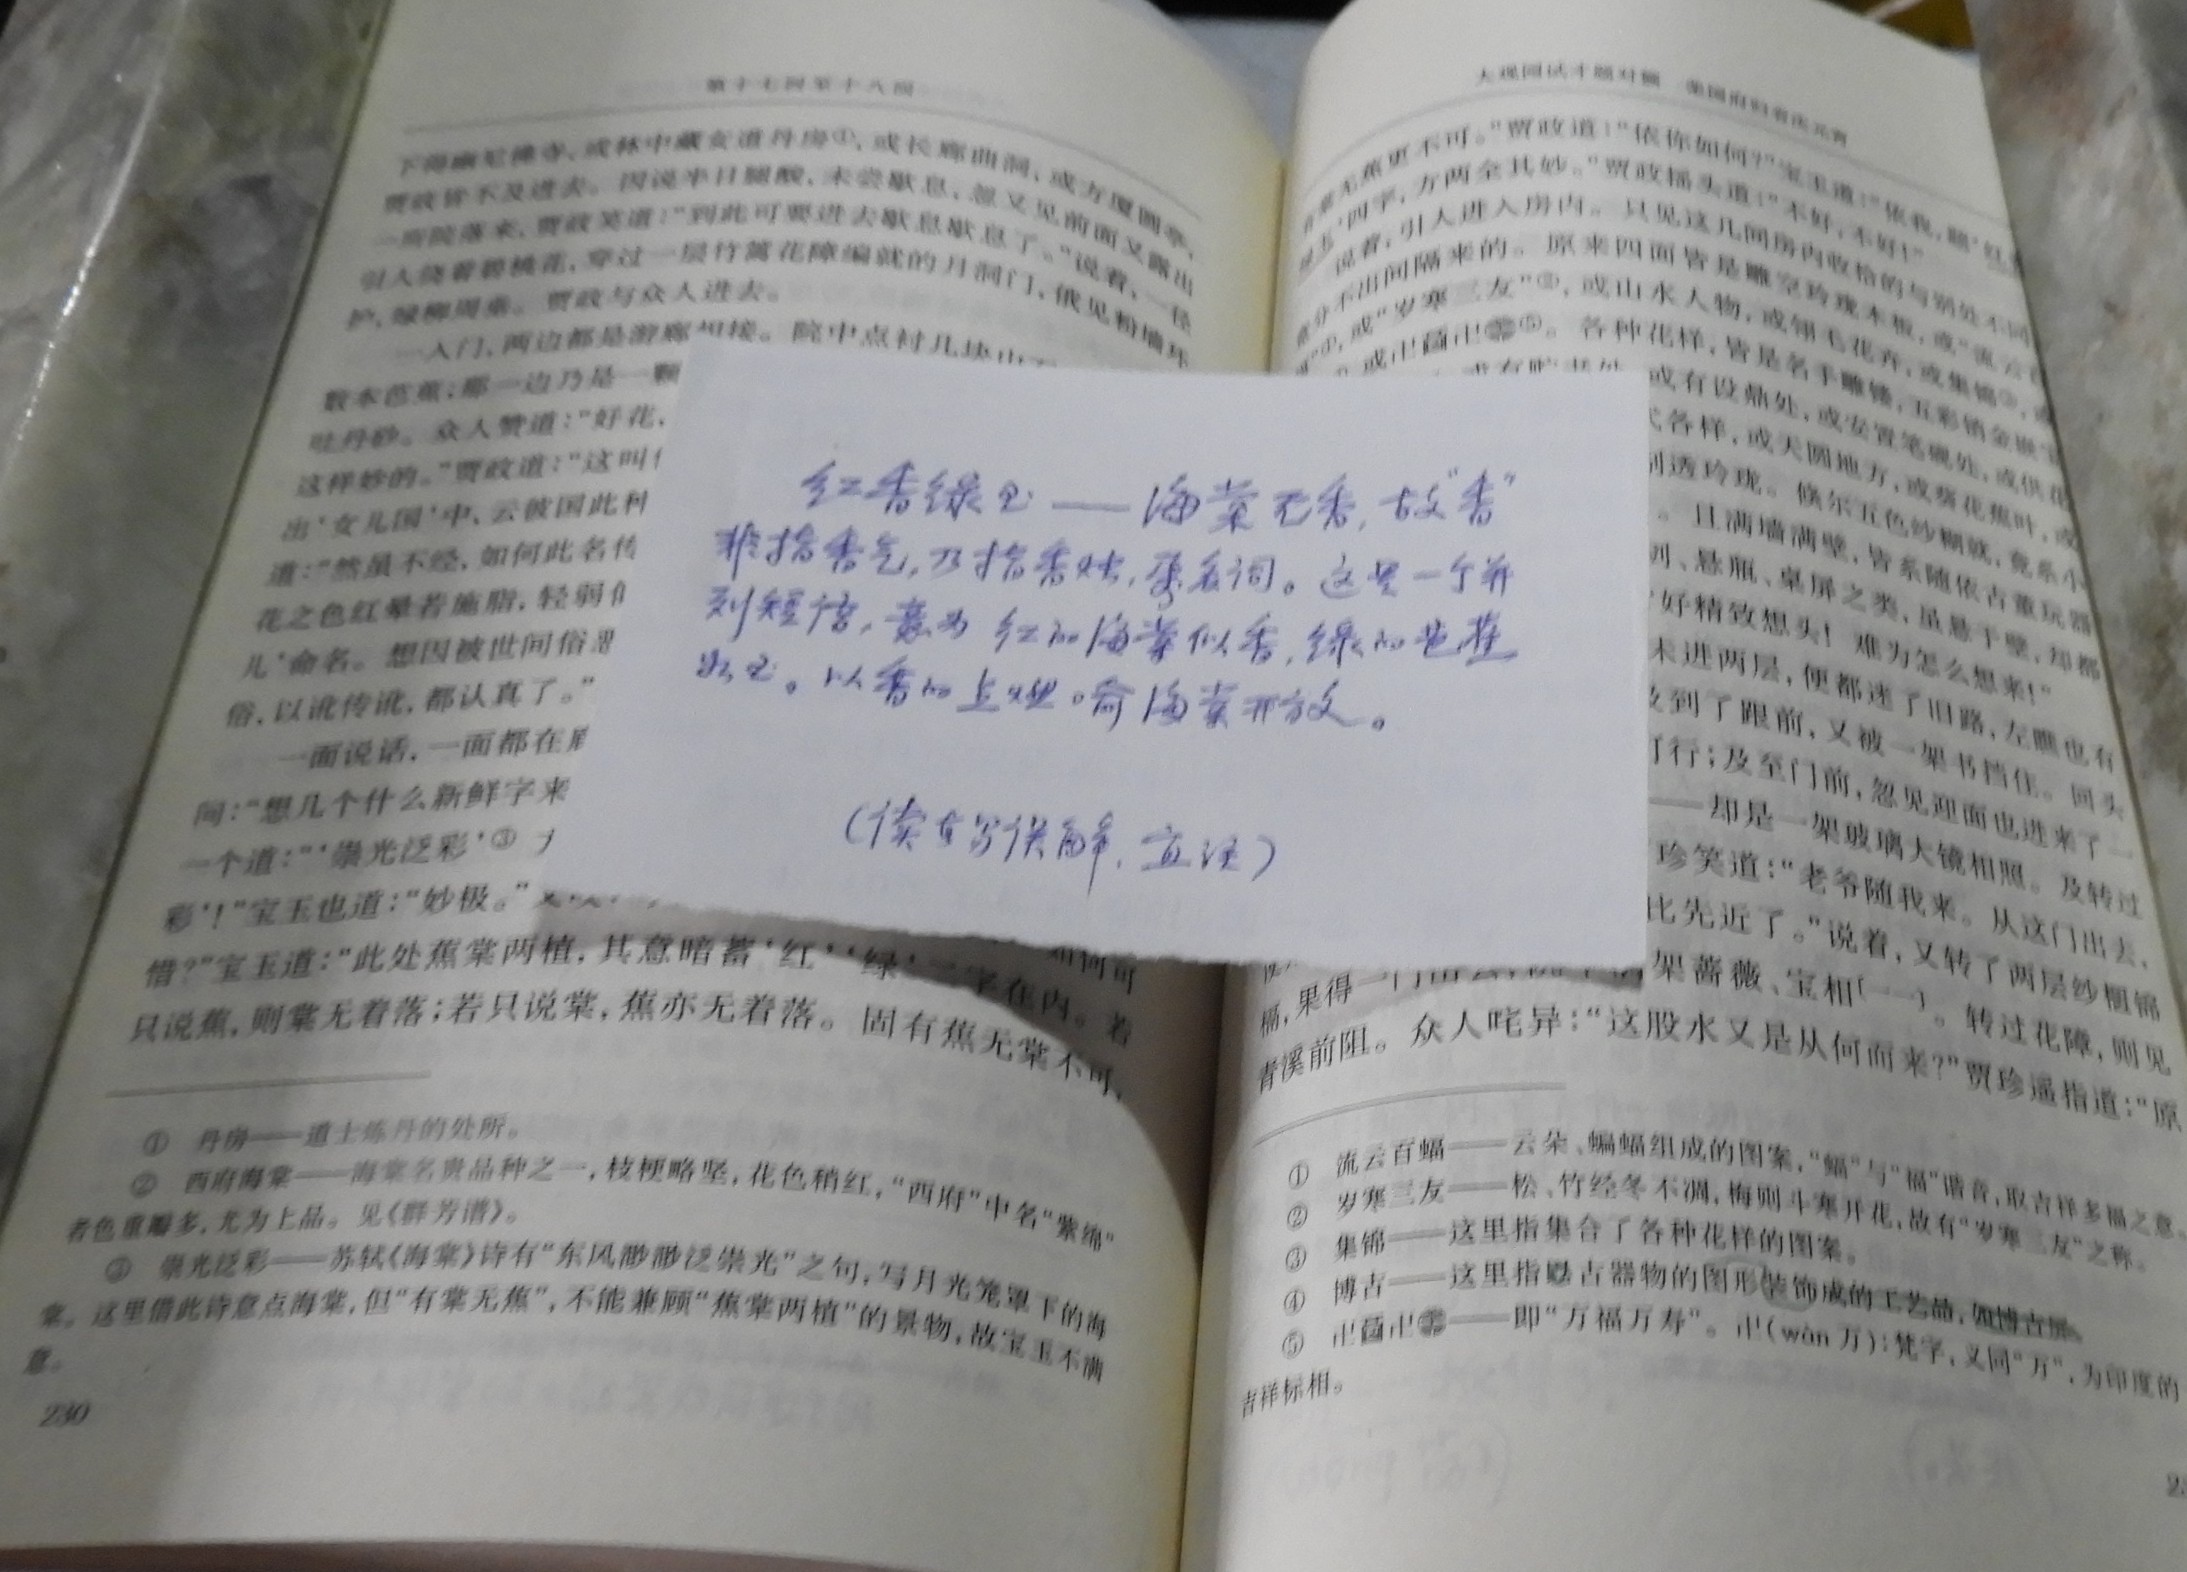 第十七回至十八回
下得幽尼佛寺,或林中藏女道丹房①,或长廊曲洞,或方厦圆亭,
贾政皆不及进去。因说半日腿酸,未尝歇息,忽又见前面又露出
一所院落来,贾政笑道:“到此可要进去歇息歇息了。”说着,一径
引人绕着碧桃花,穿过一层竹篱花障编就的月洞门,俄见粉墙环
护,绿柳周垂。贾政与众人进去。
一入门,两边都是游廊相接。院中点衬几块山石
数本芭蕉;那一边乃是一颗
吐丹砂。众人赞道:“好花,
这样妙的。”贾政道:“这叫
出‘女儿国’中,云彼国此种
道:“然虽不经,如何此名传
花之色红晕若施脂,轻弱似
儿’命名。想因被世间俗恶
俗,以讹传讹,都认真了。”
一面说话,一面都在廊
问:“想几个什么新鲜字来
一个道:“‘崇光泛彩’③
彩’!”宝玉也道:“妙极。”
如何可
惜?”宝玉道:“此处蕉棠两植,其意暗蓄‘红’‘绿’二字在内。若
只说蕉,则棠无着落;若只说棠,蕉亦无着落。固有蕉无棠不可,
① 丹房——道士炼丹的处所。
② 西府海棠——海棠名贵品种之一,枝梗略坚,花色稍红,“西府”中名“紫绵”
者色重瓣多,尤为上品。见《群芳谱》。
③ 崇光泛彩——苏轼《海棠》诗有“东风渺渺泛崇光”之句,写月光笼罩下的海
棠。这里借此诗意点海棠,但“有棠无蕉”,不能兼顾“蕉棠两植”的景物,故宝玉不满
意。
230
红香绿玉——海棠无香,故“香”
非指香气,乃指香炷,系名词。这是一个并
列短语,意为红的海棠似香,绿的芭蕉
如玉。以香的点燃喻海棠开放。
(读者易误解,宜注)
大观园试才题对额 荣国府归省庆元宵
有棠无蕉更不可。”贾政道:“依你如何?”宝玉道:“依我,题‘红香
绿玉’四字,方两全其妙。”贾政摇头道:“不好,不好!”
说着,引人进入房内。只见这几间房内收拾的与别处不同,
竟分不出间隔来的。原来四面皆是雕空玲珑木板,或“流云百
蝠”①,或“岁寒三友”②,或山水人物,或翎毛花卉,或集锦③,或
各种花样,皆是名手雕镂,五彩销金嵌宝
或有设鼎处,或安置笔砚处,或供花
式各样,或天圆地方,或葵花蕉叶,或
剔透玲珑。倏尔五色纱糊就,竟系小
。且满墙满壁,皆系随依古董玩器
剑、悬瓶、桌屏之类,虽悬于壁,却都
“好精致想头!难为怎么想来!”
未进两层,便都迷了旧路,左瞧也有
及到了跟前,又被一架书挡住。回头
可行;及至门前,忽见迎面也进来了一
——却是一架玻璃大镜相照。及转过
珍笑道:“老爷随我来。从这门出去,
比先近了。”说着,又转了两层纱橱锦
槅,果得一门出去,院中满架蔷薇、宝相〔一〕。转过花障,则见
青溪前阻。众人咤异:“这股水又是从何而来?”贾珍遥指道:“原
① 流云百蝠——云朵、蝙蝠组成的图案,“蝠”与“福”谐音,取吉祥多福之意。
② 岁寒三友——松、竹经冬不凋,梅则斗寒开花,故有“岁寒三友”之称。
③ 集锦——这里指集合了各种花样的图案。
④ 博古——这里指摹古器物的图形装饰成的工艺品,如博古屏。
——即“万福万寿”。卍(wàn 万):梵字,义同“万”,为印度的
吉祥标相。